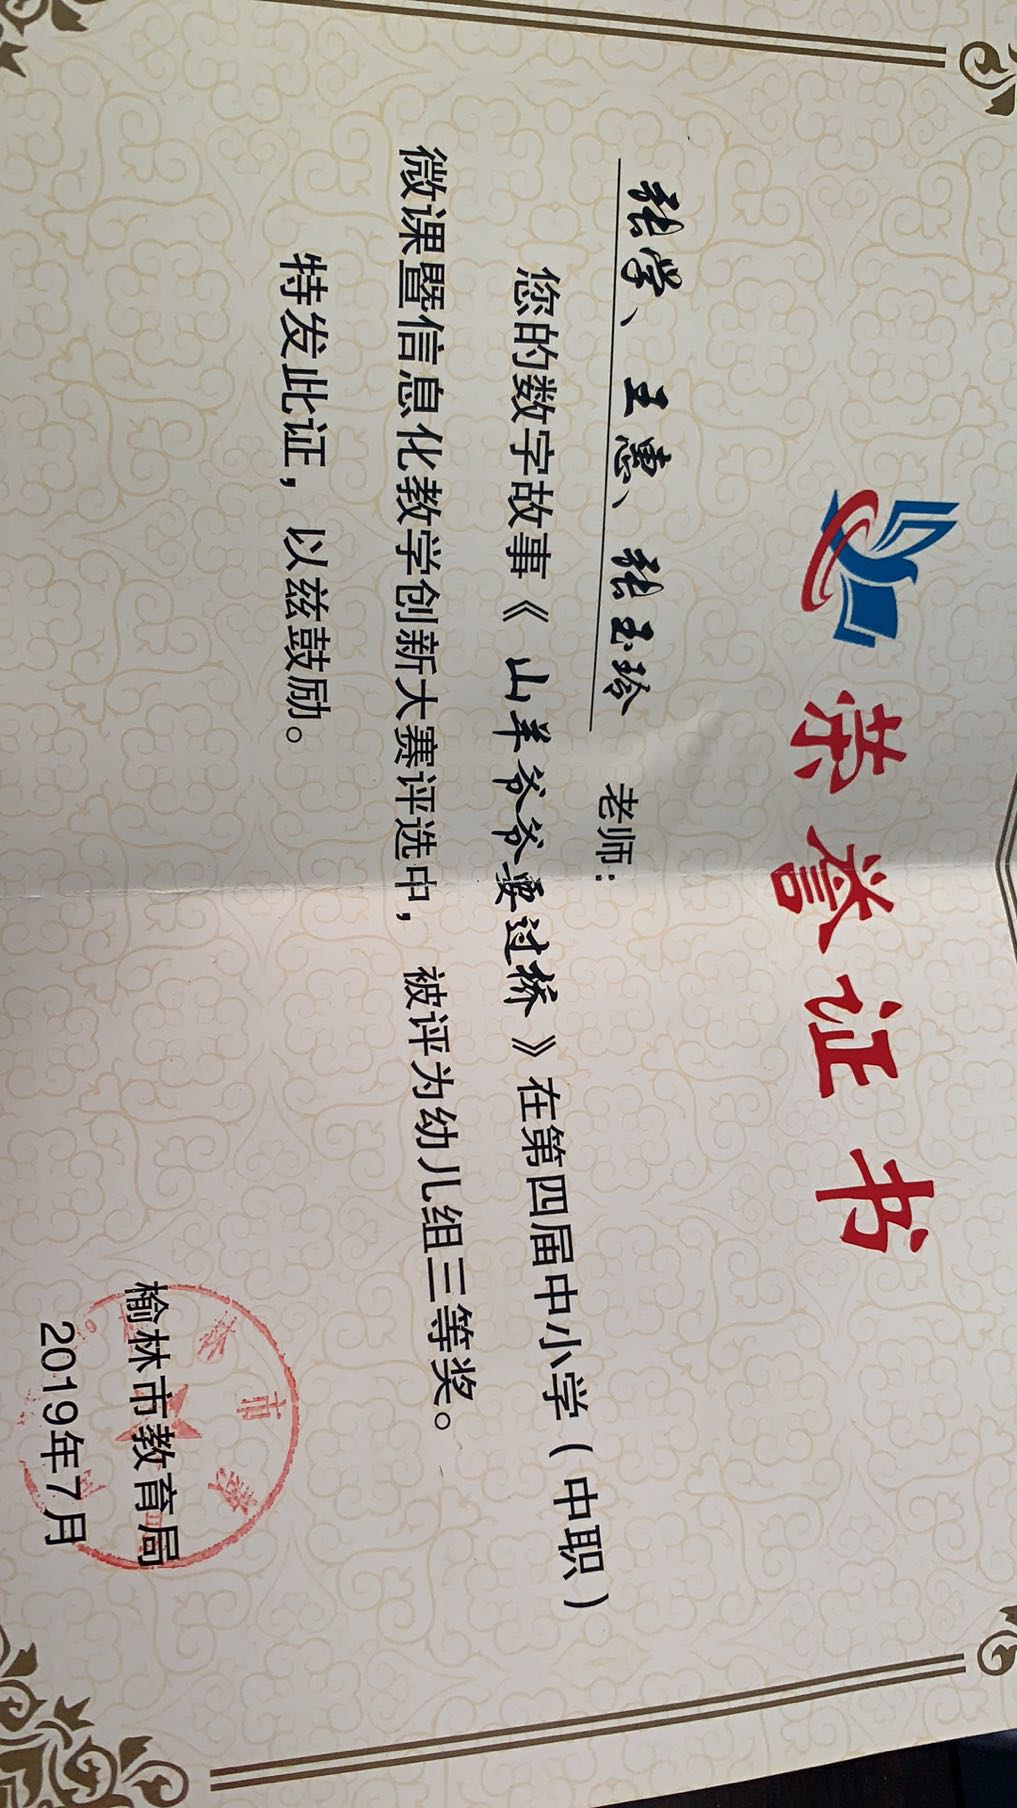 荣誉证书
张学、王惠、张玉玲 老师：
您的数字故事《山羊爷爷要过桥》在第四届中小学（中职）
微课暨信息化教学创新大赛评选中，被评为幼儿组三等奖。
特发此证，以兹鼓励。
榆林市教育局
2019年7月